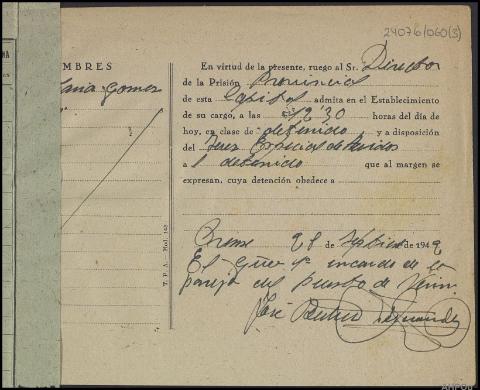 24076/060(3)
NA
MBRES
Gomez
"
T. P. A. - Mod. 142
En virtud de la presente, ruego al Sr. Director
de la Prisión Provincial
de esta Capital admita en el Establecimiento
de su cargo, a las 12'30 horas del día de
hoy, en clase de detenido y a disposición
del Juez Especial de
a l detenido que al margen se
expresan, cuya detención obedece a
Orense 28 de Septiembre de 1949
El Guardia 1º encargado de la
pareja del puesto de
José